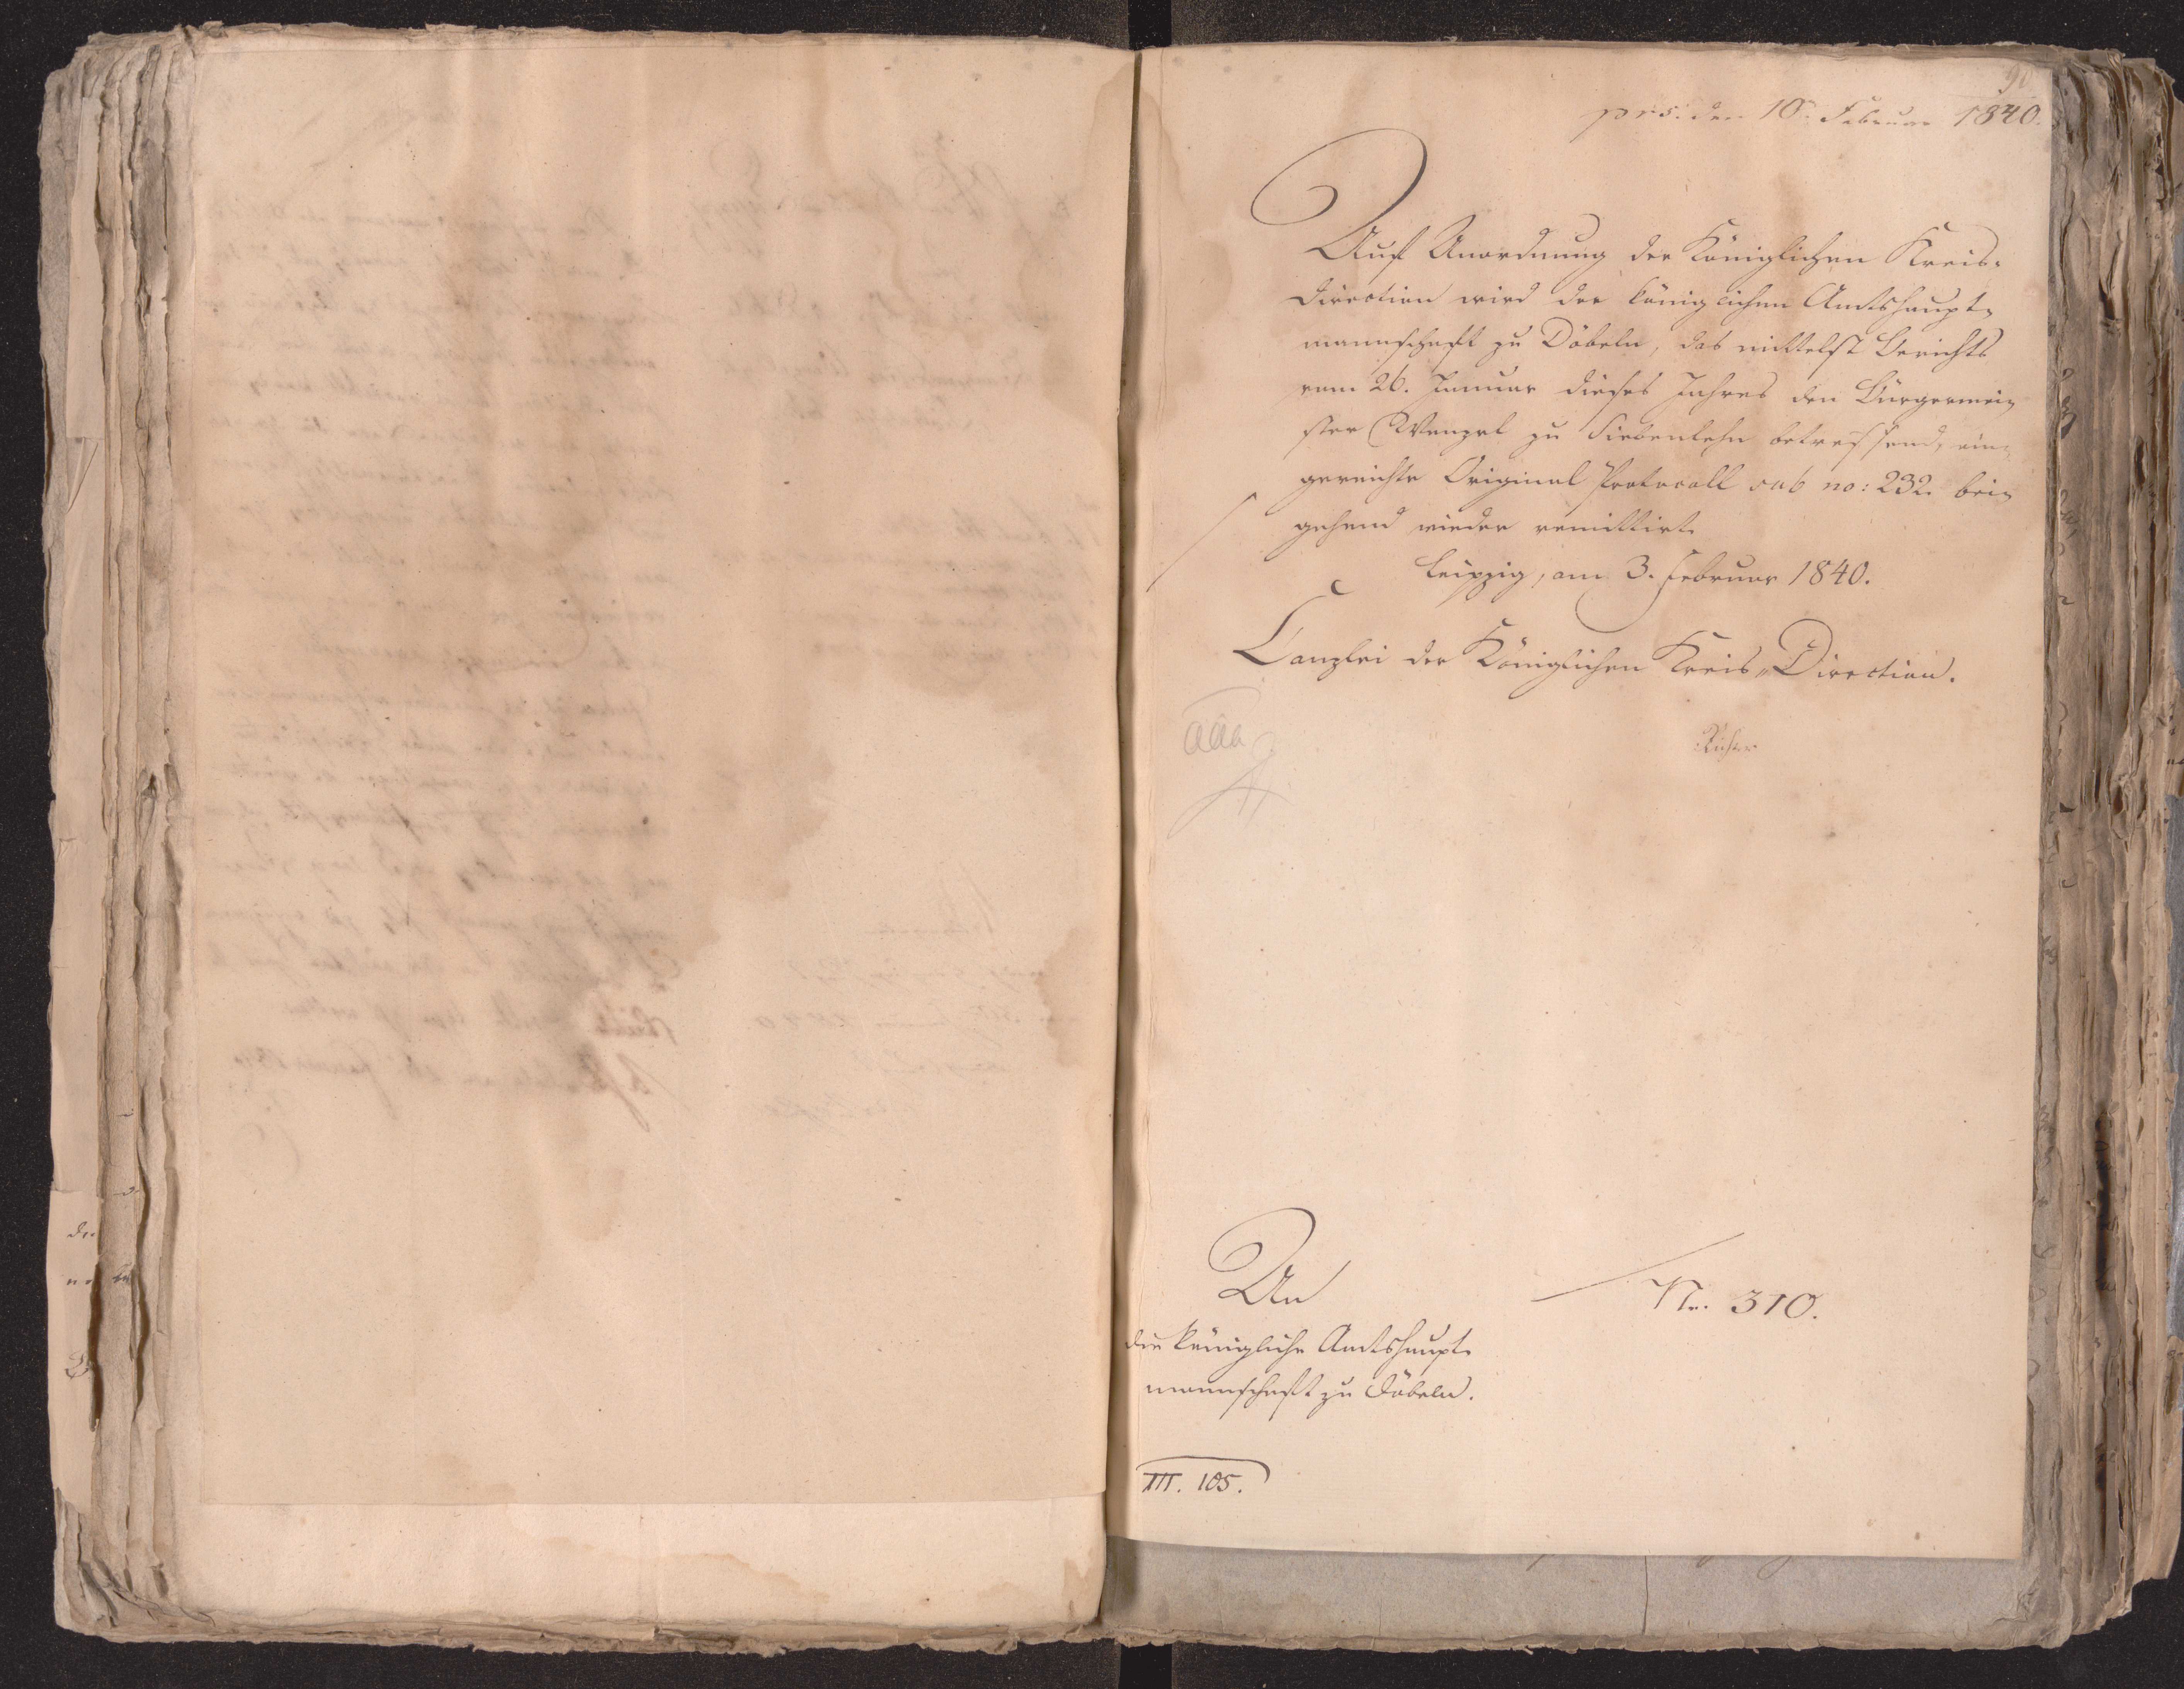 90
prs. den 10. Februar 1840.
Auf Anordnung der Königlichen Kreis-
direction wird der königlichen Amtshaupt-
mannschaft zu Döbeln, das mittelst Berichts
vom 26. Januar dieses Jahres den Bürgermei-
ster Wenzel zu Siebenlehn betreffend, ein-
gereichte Original Protocoll sub no: 232. bei-
gehend wieder remittirt.
Leipzig, am 3. Februar 1840.
Canzlei der Königlichen Kreis-Direction.
Richter.
An
die königliche Amtshaupt-
mannschaft zu Döbeln.
Nr. 310.
III. 105.